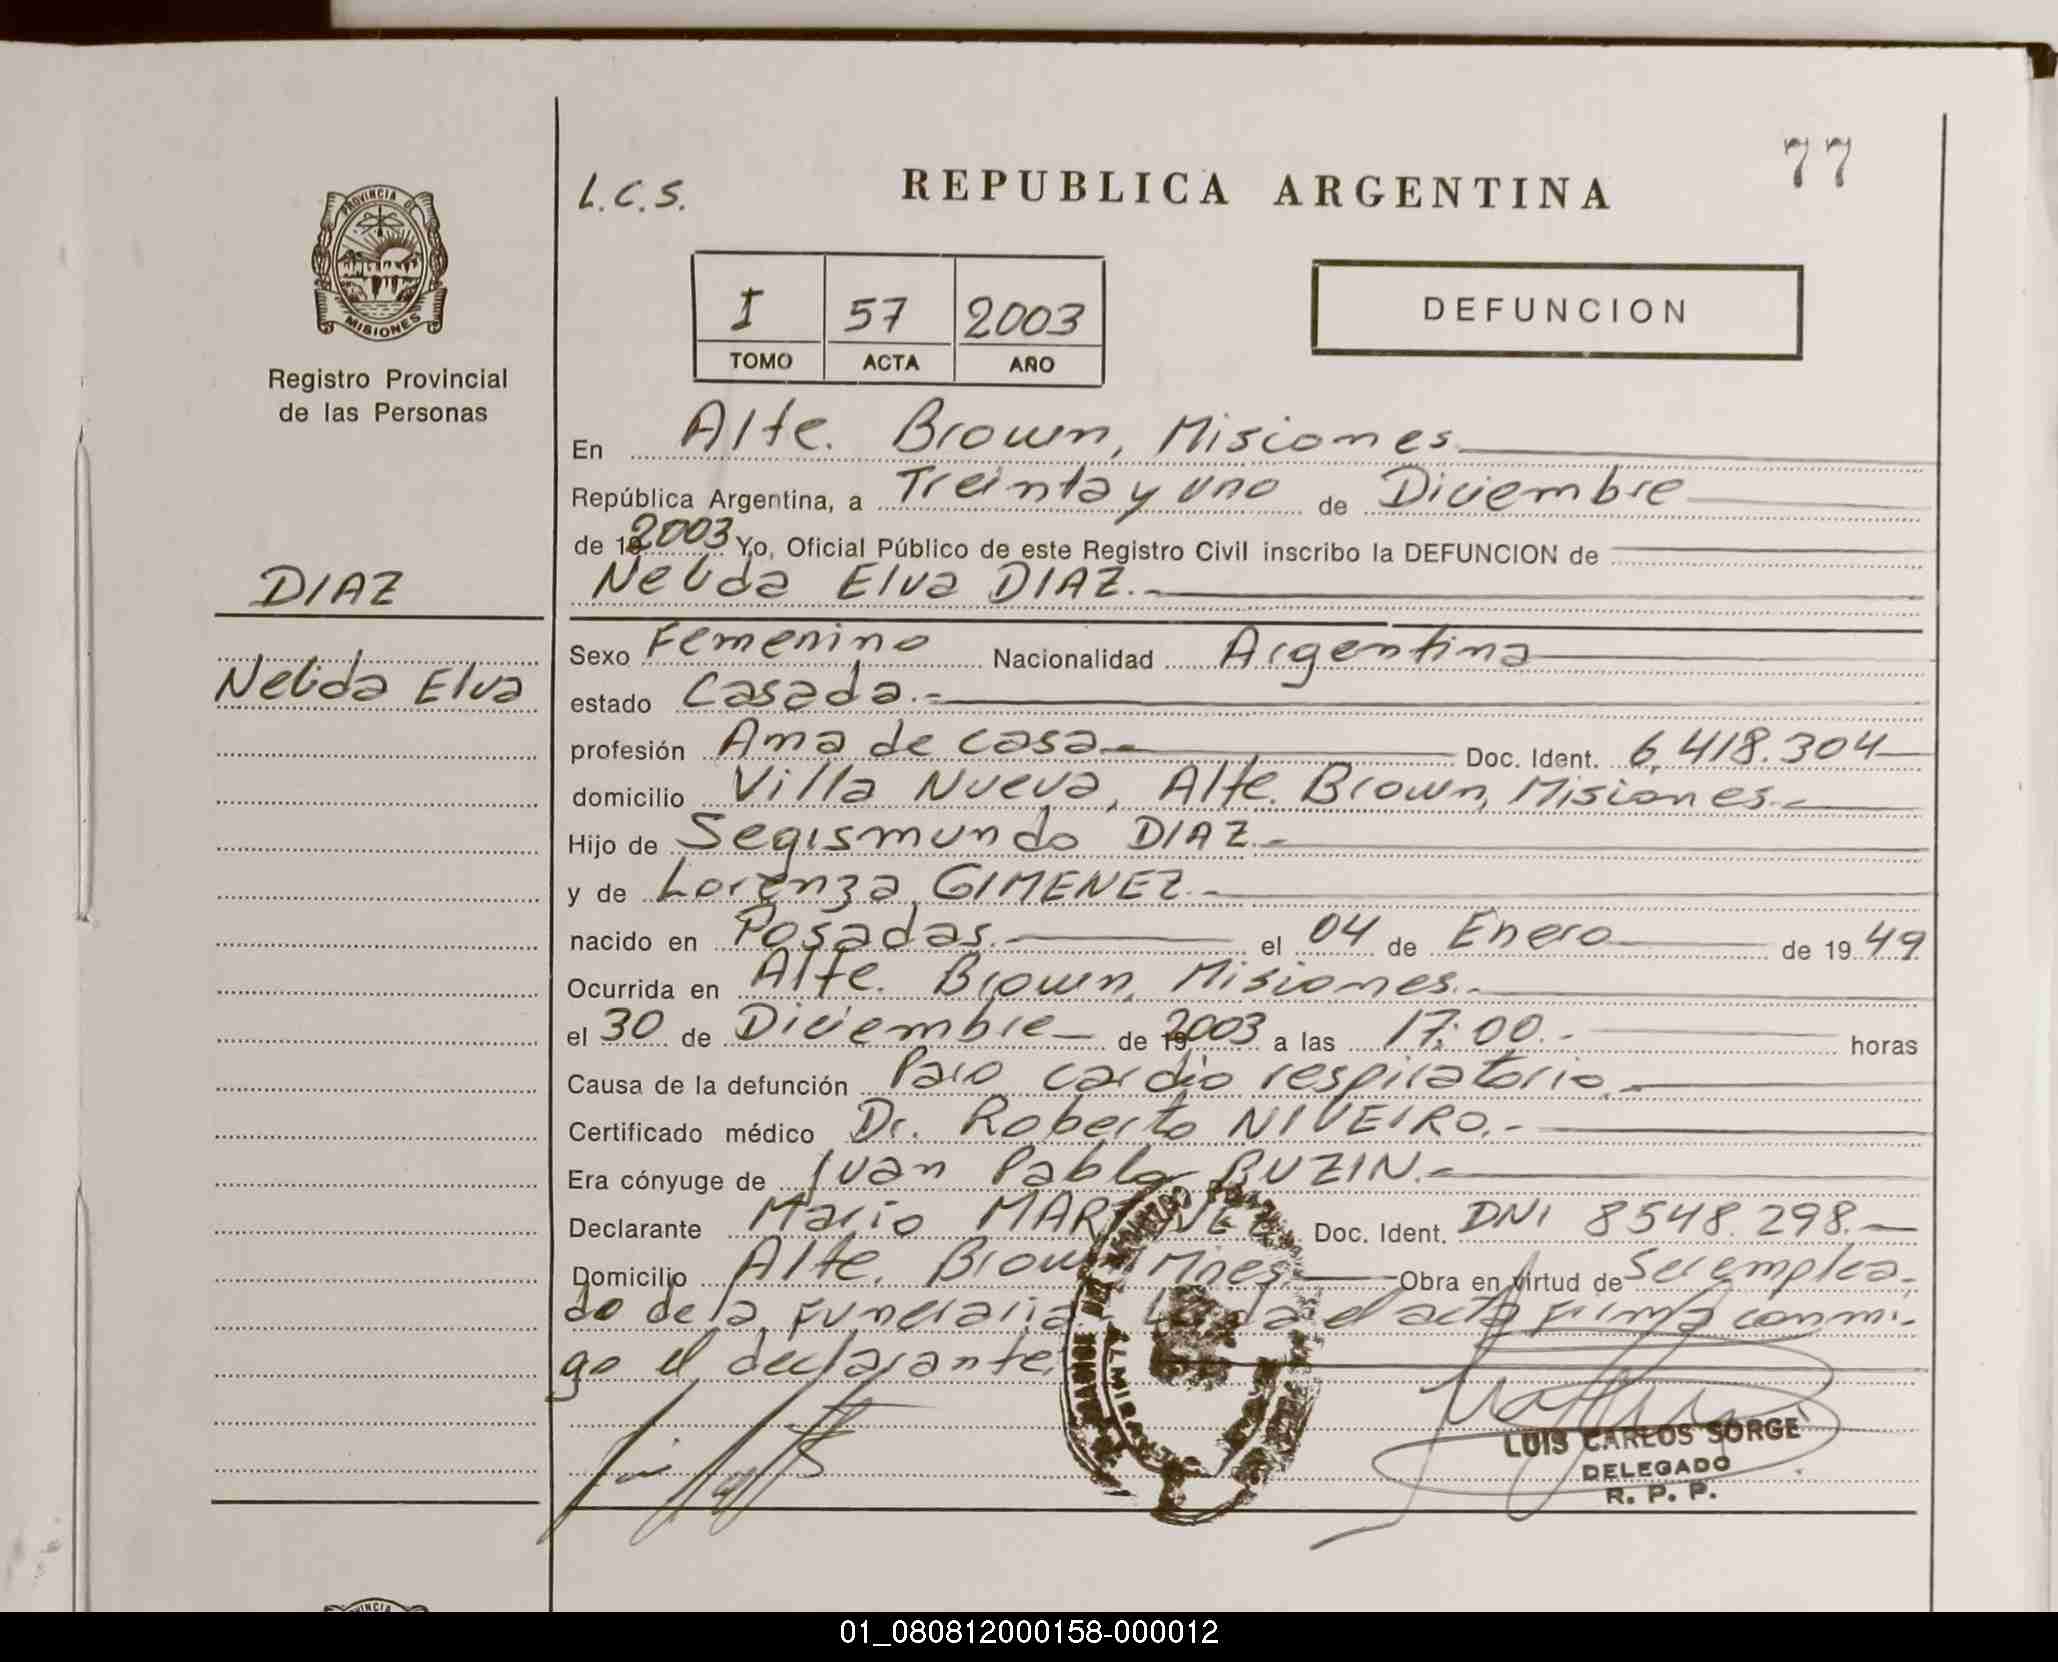 77
L.C.S.
REPUBLICA ARGENTINA
PROVINCIA DE
MISIONES
Registro Provincial
de las Personas
I 57 2003
TOMO ACTA AÑO
DEFUNCION
En Alte. Brown, Misiones
República Argentina, a Treinta y uno de Diciembre
de 2003 Yo, Oficial Público de este Registro Civil inscribo la DEFUNCION de
DIAZ
Nelida Elva DIAZ.-
Nelida Elva
Sexo Femenino Nacionalidad Argentina
estado Casada.-
profesión Ama de casa Doc. Ident. 6.418.304
domicilio Villa Nueva, Alte. Brown, Misiones.-
Hijo de Segismundo DIAZ.-
y de Lorenza GIMENEZ.-
nacido en Posadas. el 04 de Enero de 1949
Ocurrida en Alte. Brown, Misiones.-
el 30 de Diciembre de 2003 a las 17:00.- horas
Causa de la defunción Paro cardio respiratorio.-
Certificado médico Dr. Roberto NIVEIRO.-
Era cónyuge de Juan Pablo BUZIN.-
Declarante Mario MARTINEZ Doc. Ident. DNI 8548.298.-
Domicilio Alte. Brown Mnes. Obra en virtud de Ser emplea-
do de la Funeraria. Leida el acta firma conmi-
go el declarante.
LUIS CARLOS SORGE
DELEGADO
R. P. P.
01_080812000158-000012